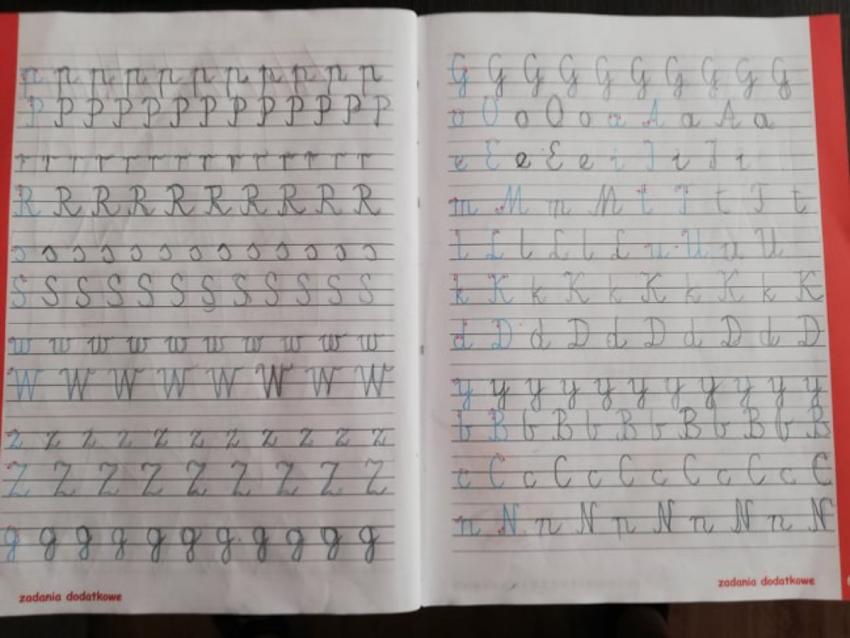 p p p p p p p p p p p
P P P P P P P P P P P P P
r r r r r r r r r r r r r r
R R R R R R R R R R
s s s s s s s s s s s s s
S S S S S S S S S S S S
w w w w w w w w w w
W W W W W W W W
z z z z z z z z z z z
Z Z Z Z Z Z Z Z Z
g g g g g g g g g g g
zadania dodatkowe
G G G G G G G G G G
o O o O o a A a A a
e E e E e i I i I i
m M m M t T t T t
l L l L l L u U u U
k K k K k K k K k K
d D d D d D d D d D
y y y y y y y y y y y
b B b B b B b B b B b B
c C c C c C c C c C c C
n N n N n N n N n N
zadania dodatkowe